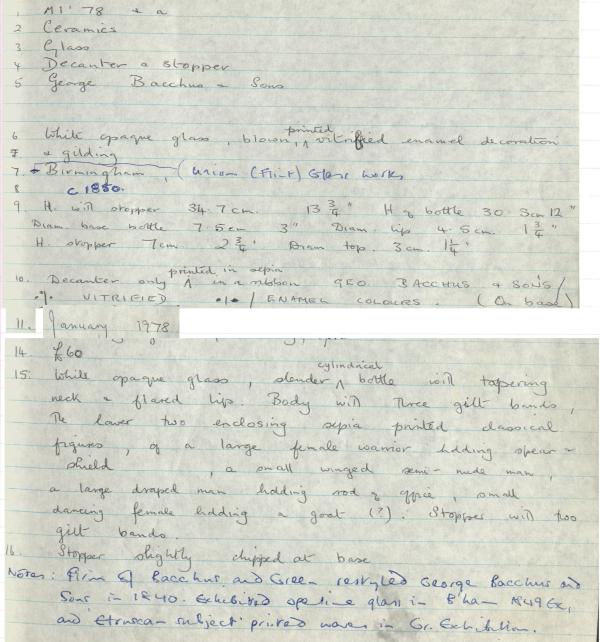 1 M1' 78 + a
2 Ceramics
3 Glass
4 Decanter & stopper
5 George Bacchus & Sons
6 White opaque glass, blown, printed vitrified enamel decoration
& gilding
7. Birmingham, (Union (Flint) Glass works
8 c 1850.
9 H. with stopper 34.7cm. 13 3/4" H of bottle 30.3cm 12"
Diam. base bottle 7.5cm 3" Diam. lip 4.5cm. 1 3/4"
H. stopper 7cm. 2 3/4" Diam top. 3cm. 1 1/4"
10. Decanter only printed in sepia in a ribbon GEO. BACCHUS & SONS/
VITRIFIED / ENAMEL COLOURS. (On base)
11. January 1978
14 £60
15: White opaque glass, slender cylindrical bottle with tapering
neck & flared lip. Body with three gilt bands,
The lower two enclosing sepia printed classical
figures, of a large female warrior holding spear &
shield, a small winged semi-nude man,
a large draped man holding rod of office, small
dancing female holding a goat (?). Stopper with two
gilt bands.
16. Stopper slightly chipped at base
Notes: Firm of Bacchus and Green restyled George Bacchus and
Sons in 1840. Exhibited opaline glass in B'ham 1849 Ex,
and 'Etruscan subject' printed wares in Gr. Exhibition.